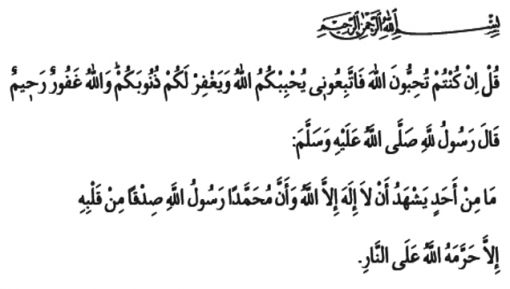 بِسْمِ اللهِ الرَّحْمٰنِ الرَّحِيمِ
قُلْ اِنْ كُنْتُمْ تُحِبُّونَ اللّٰهَ فَاتَّبِعُونٖى يُحْبِبْكُمُ اللّٰهُ وَيَغْفِرْ لَكُمْ ذُنُوبَكُمْؕ وَاللّٰهُ غَفُورٌ رَحٖيمٌ
قَالَ رَسُولُ للَّهِ صَلَّى اللَّهُ عَلَيْهِ وَسَلَّمَ:
مَا مِنْ أَحَدٍ يَشْهَدُ أَنْ لاَ إِلَهَ إِلاَّ اللَّهُ وَأَنَّ مُحَمَّدًا رَسُولُ اللَّهِ صِدْقًا مِنْ قَلْبِهِ
إِلاَّ حَرَّمَهُ اللَّهُ عَلَى النَّارِ.